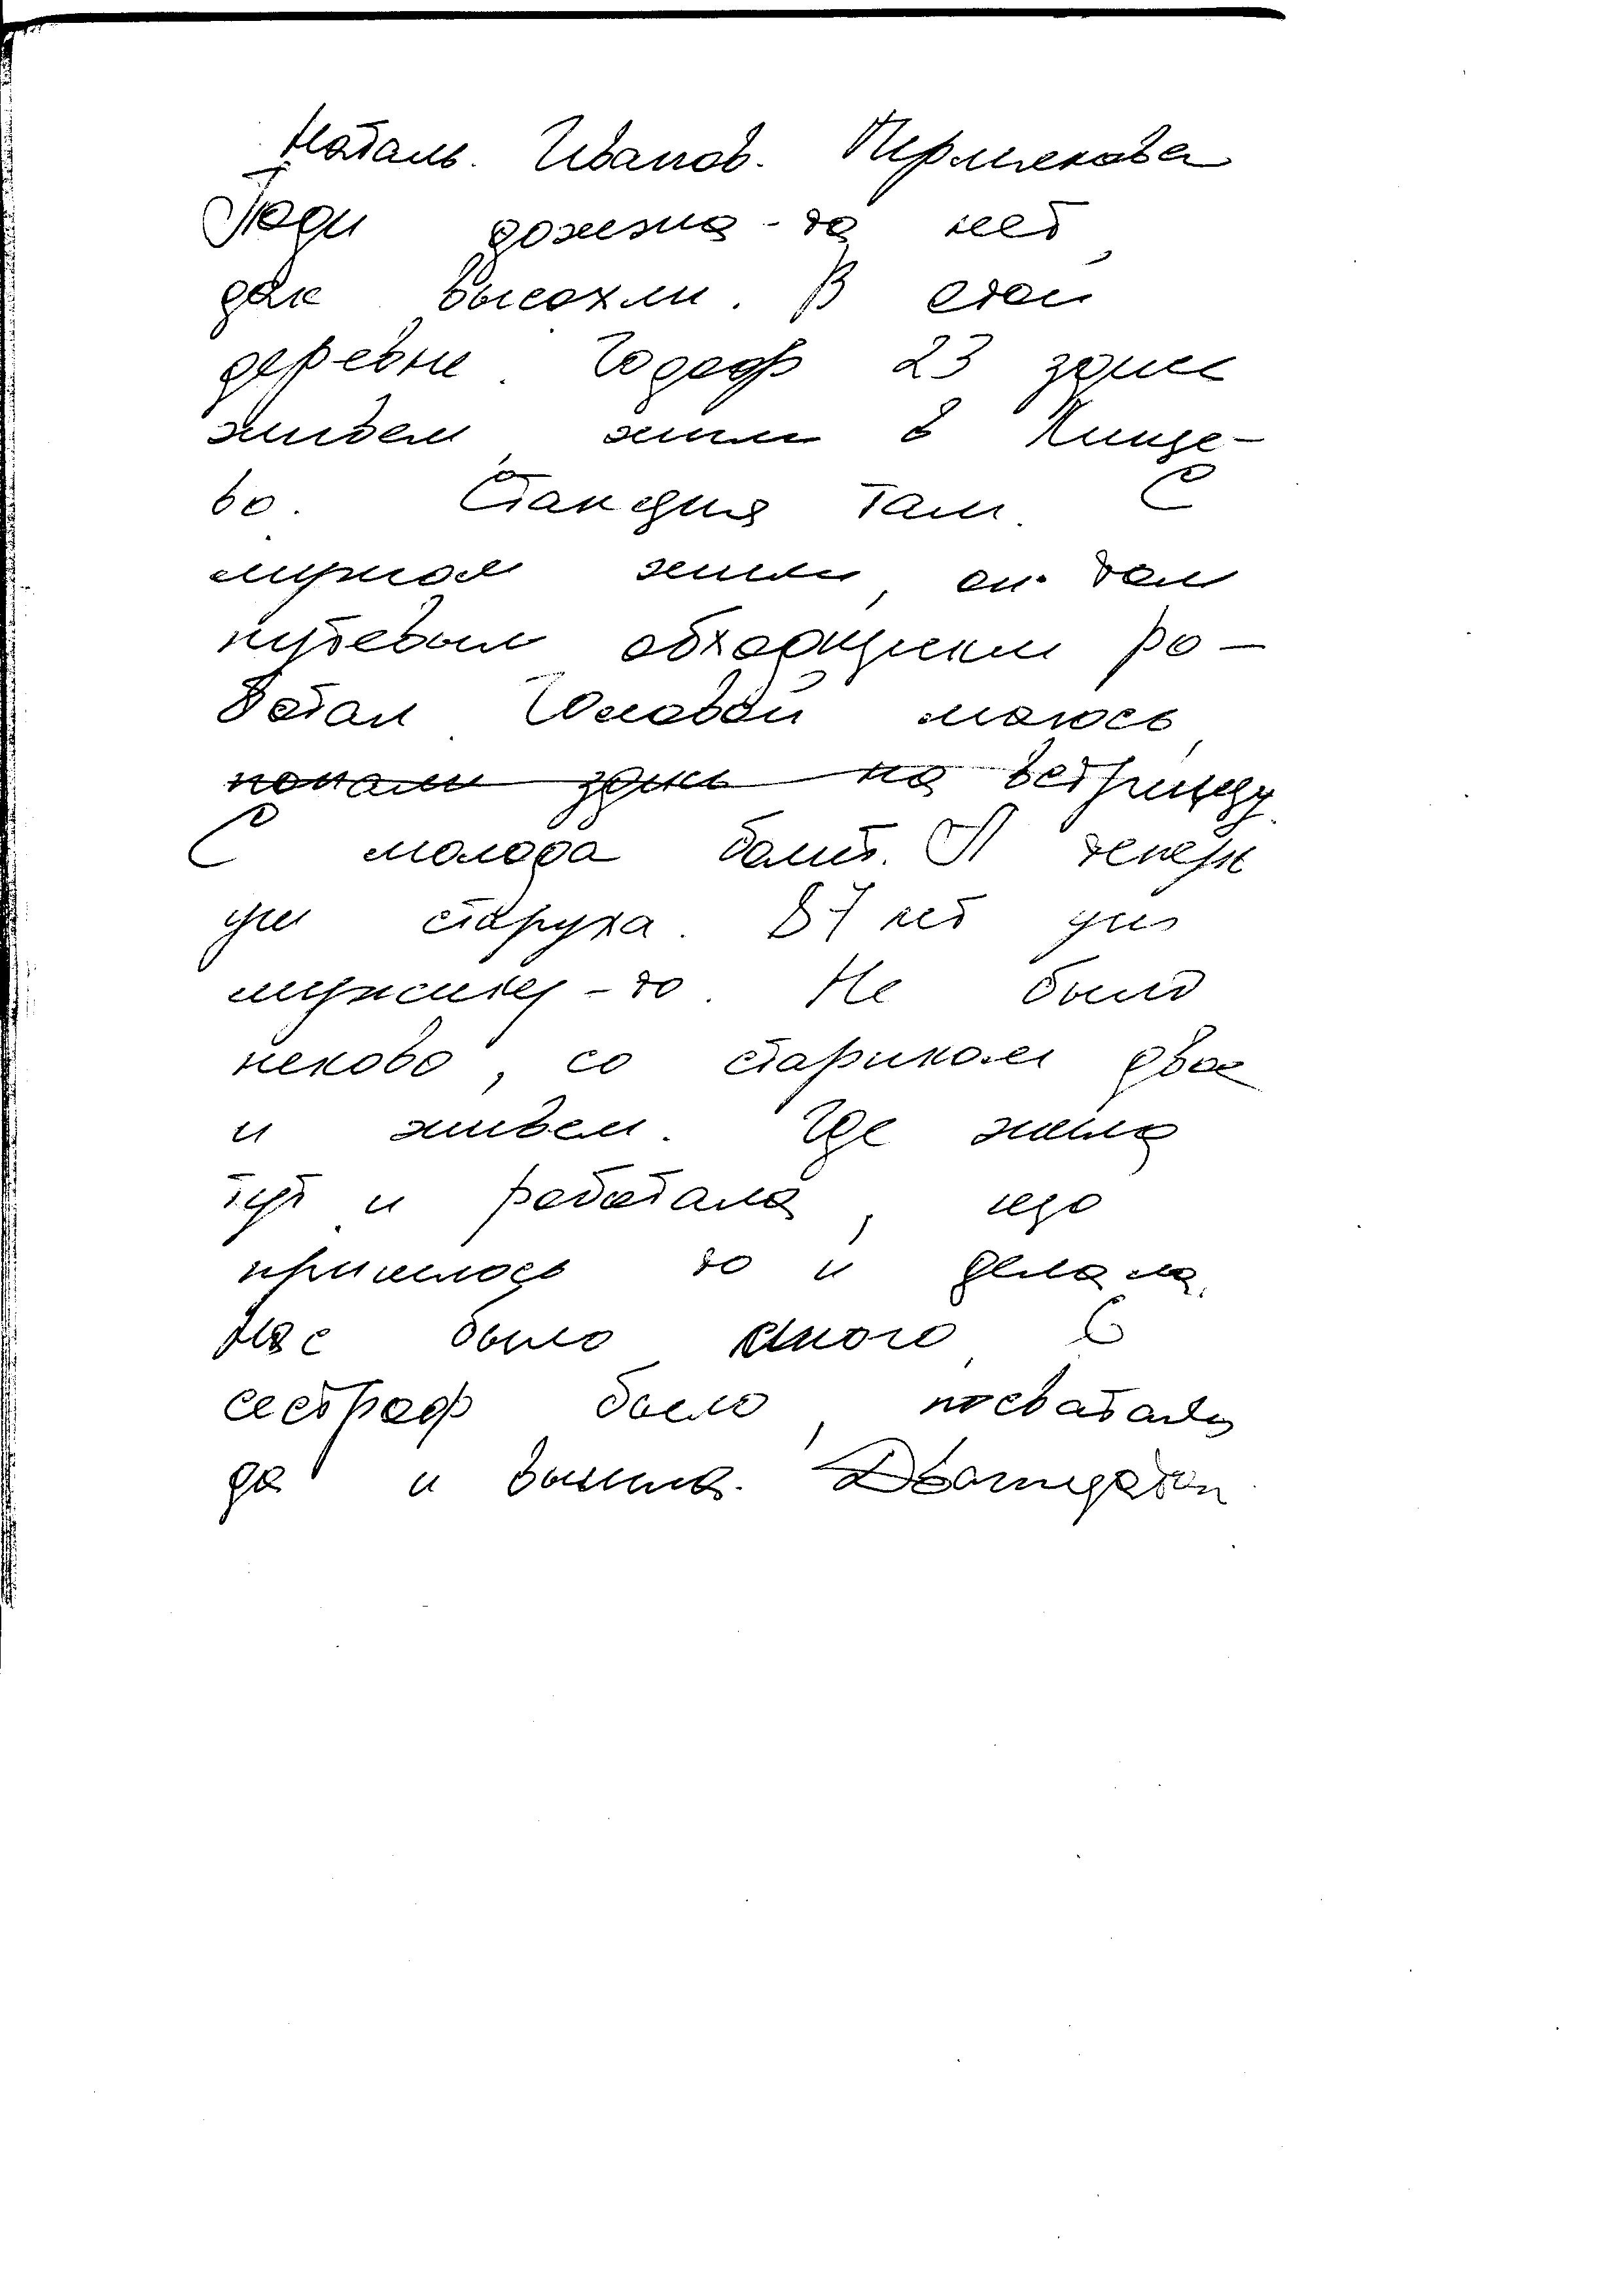 Наталь. Иванов. Пермякова
Поди дожжа-та нет,
дак высохли. В етой
деревне. Годоф 23 здись
живём, жили в Кинде-
во. Станция там. С
мужом жили, он там
путевым обходчиком ро-
ботал. Головой маюсь,
попали здись на ветрищу.
С молода болит. А теперь
уж старуха. 87 лет уж
мужику-то. Не было
неково, со стариком двое
и живём. Где жила
тут и роботала, цо
пришлось то и делала.
Нас было много, 6
сестроф было, посватали
да и вышла. Дваццатой